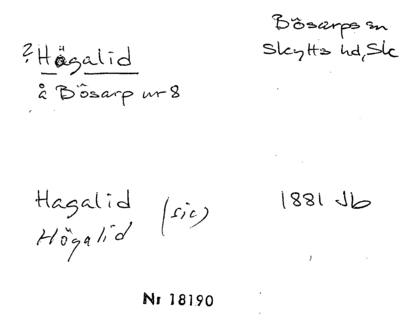 Bösarps sn
Skytts hd, Sk
? Högalid
å Bösarp nr 8
Hagalid (sic) 1881 Jb
Högalid
Nr 18190